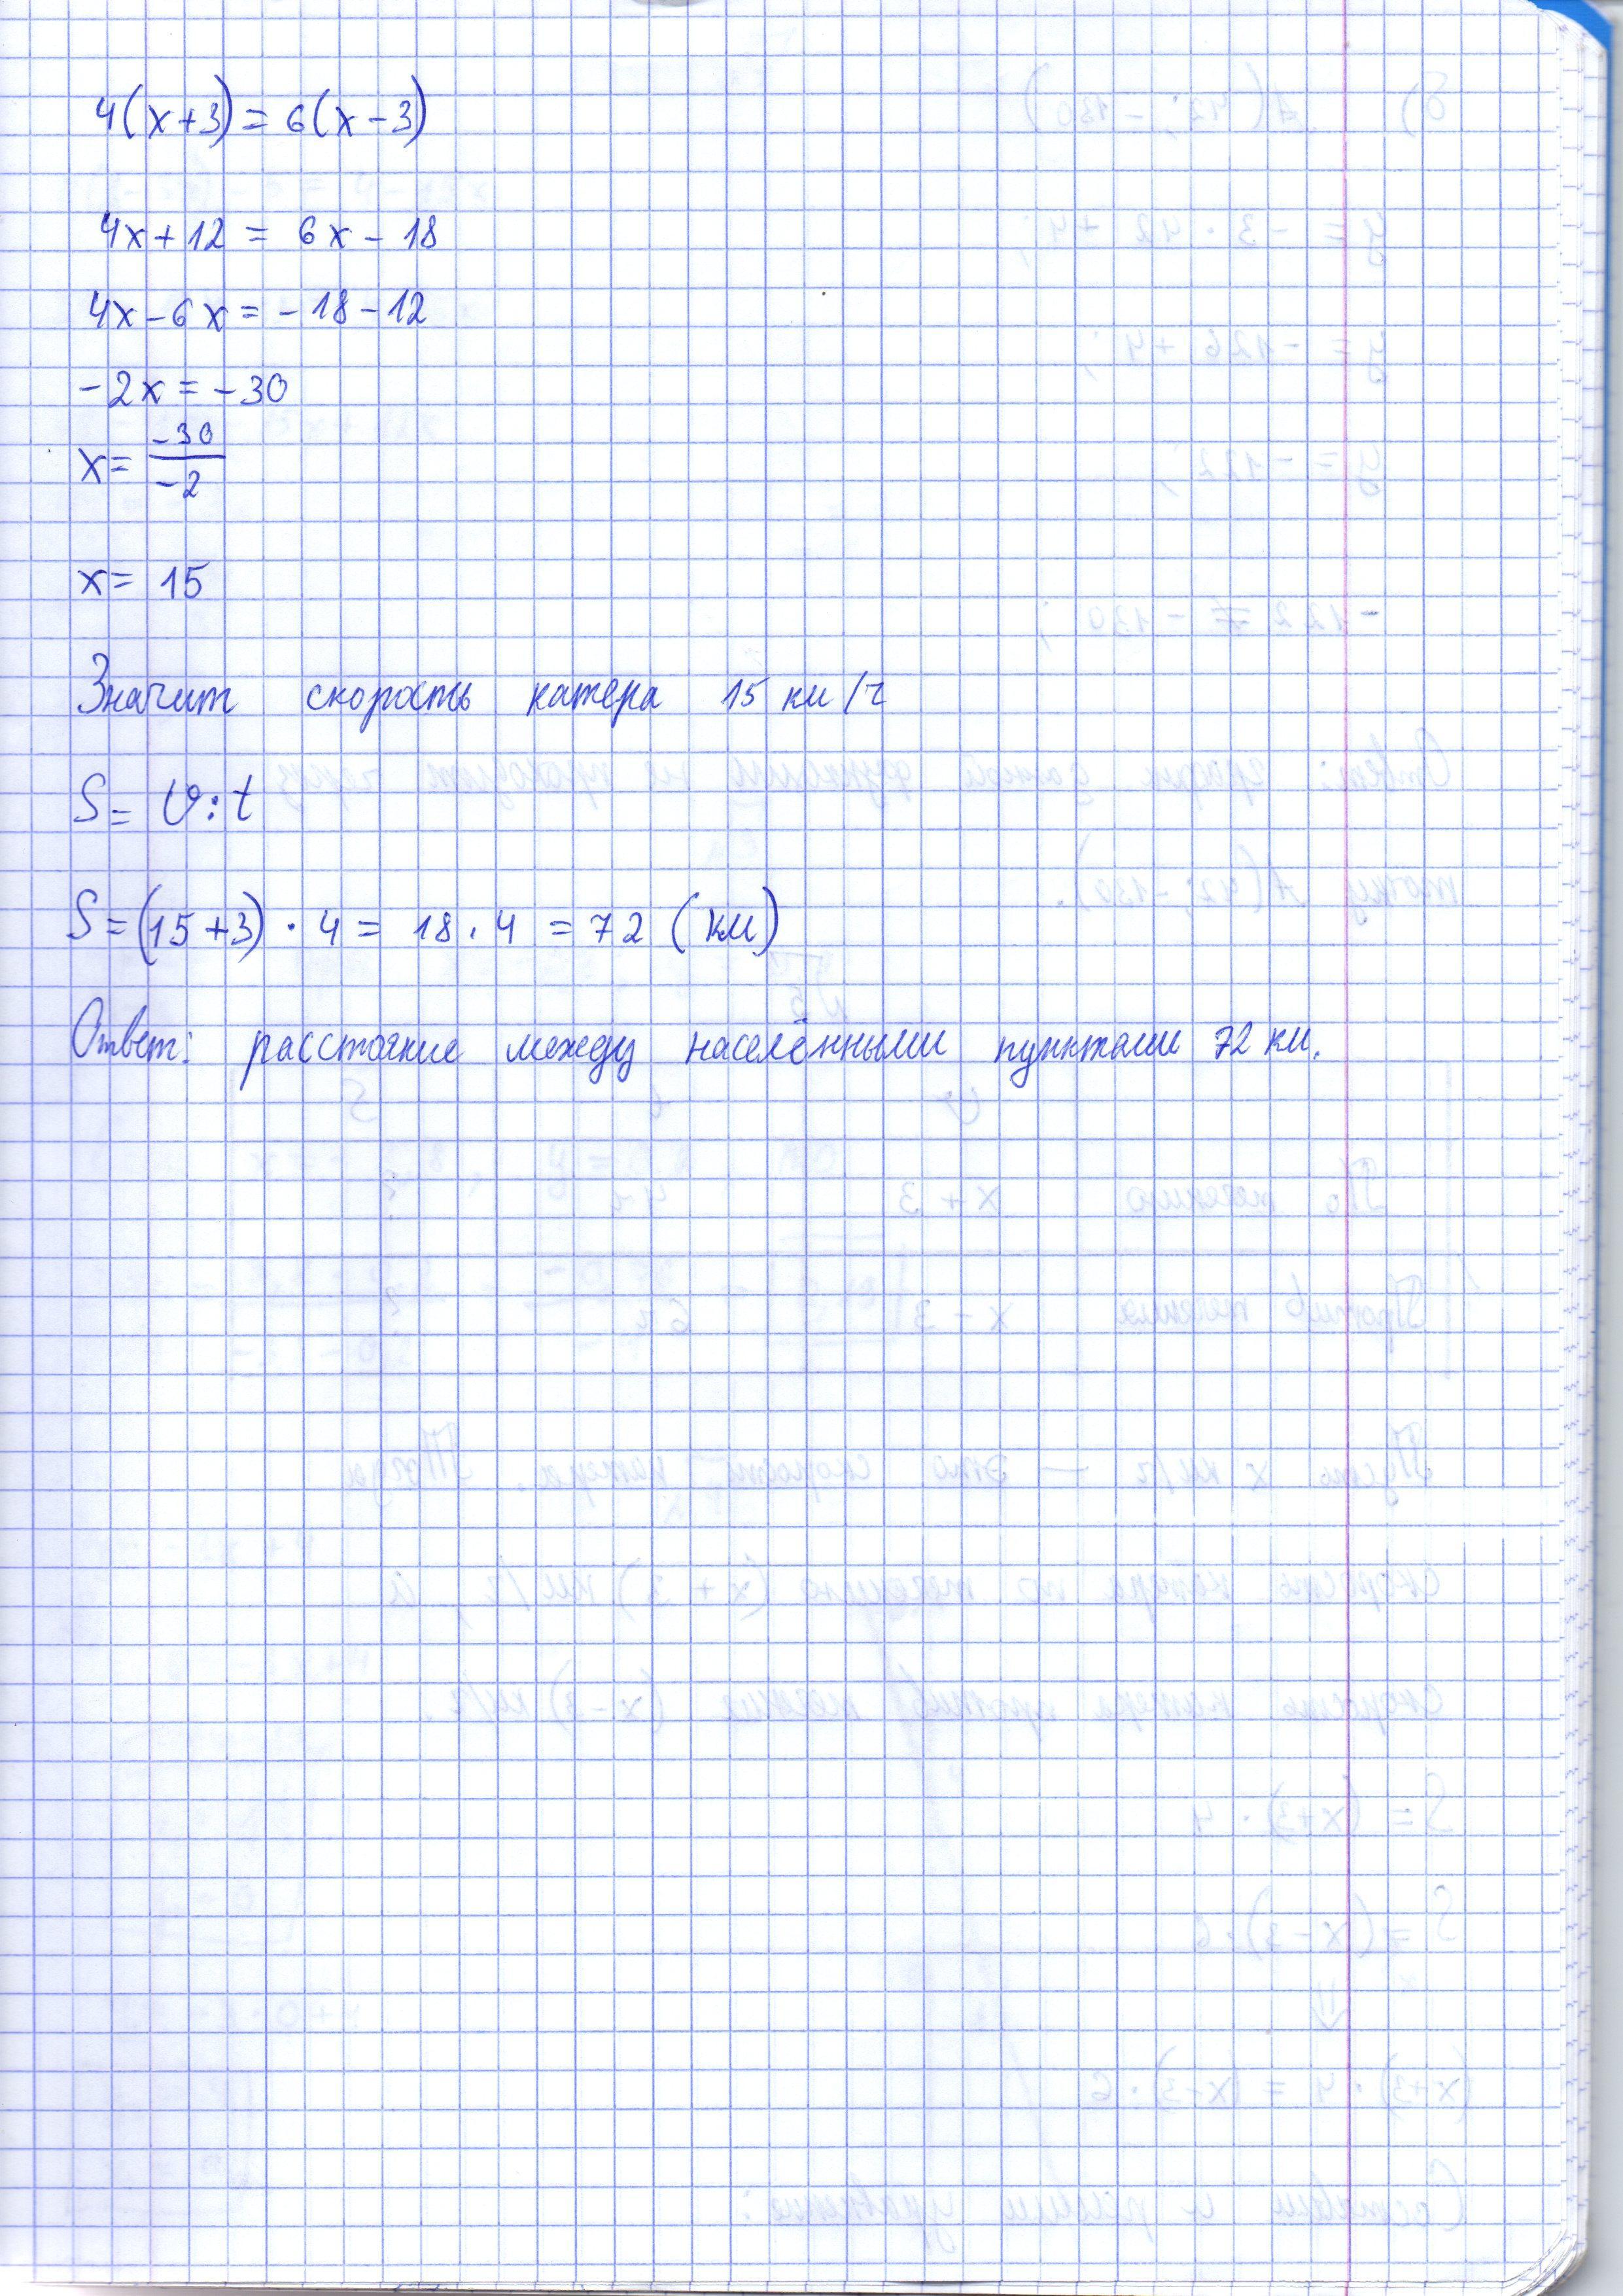 4(x+3) = 6(x-3)
4x+12 = 6x-18
4x-6x = -18-12
-2x = -30
x = -30/-2
x = 15
Значит скорость катера 15 км/ч
S = v:t
S = (15+3) · 4 = 18 · 4 = 72 (км)
Ответ: расстояние между населёнными пунктами 72 км.